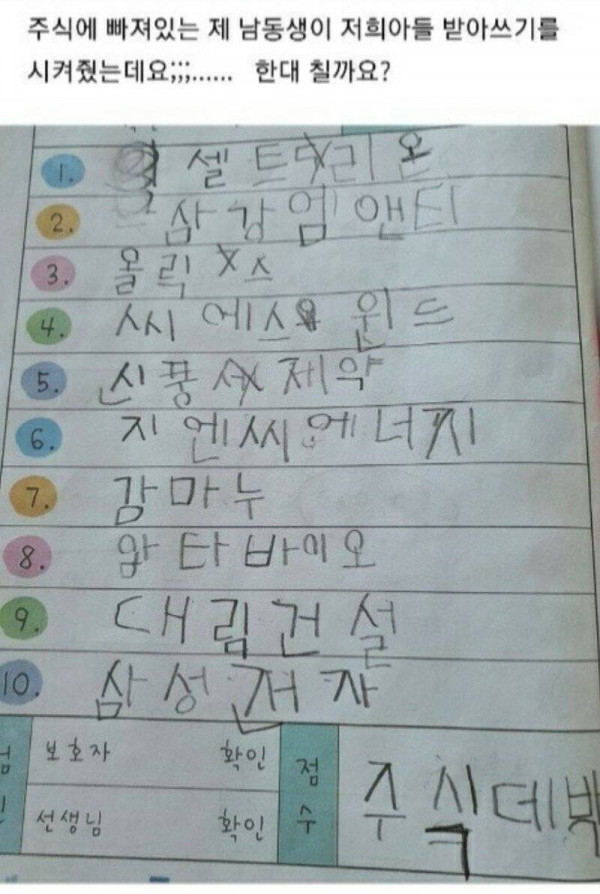 주식에 빠져있는 제 남동생이 저희아들 받아쓰기를
시켜줬는데요;;;...... 한대 칠까요?
1. 셀트리온
2. 삼강엠앤티
3. 올릭X스
4. 씨에스 윈드
5. 신풍제약
6. 지엔씨에너지
7. 감마누
8. 압타바이오
9. 대림건설
10. 삼성저자
보호자 확인 점
선생님 확인 수
주식데박